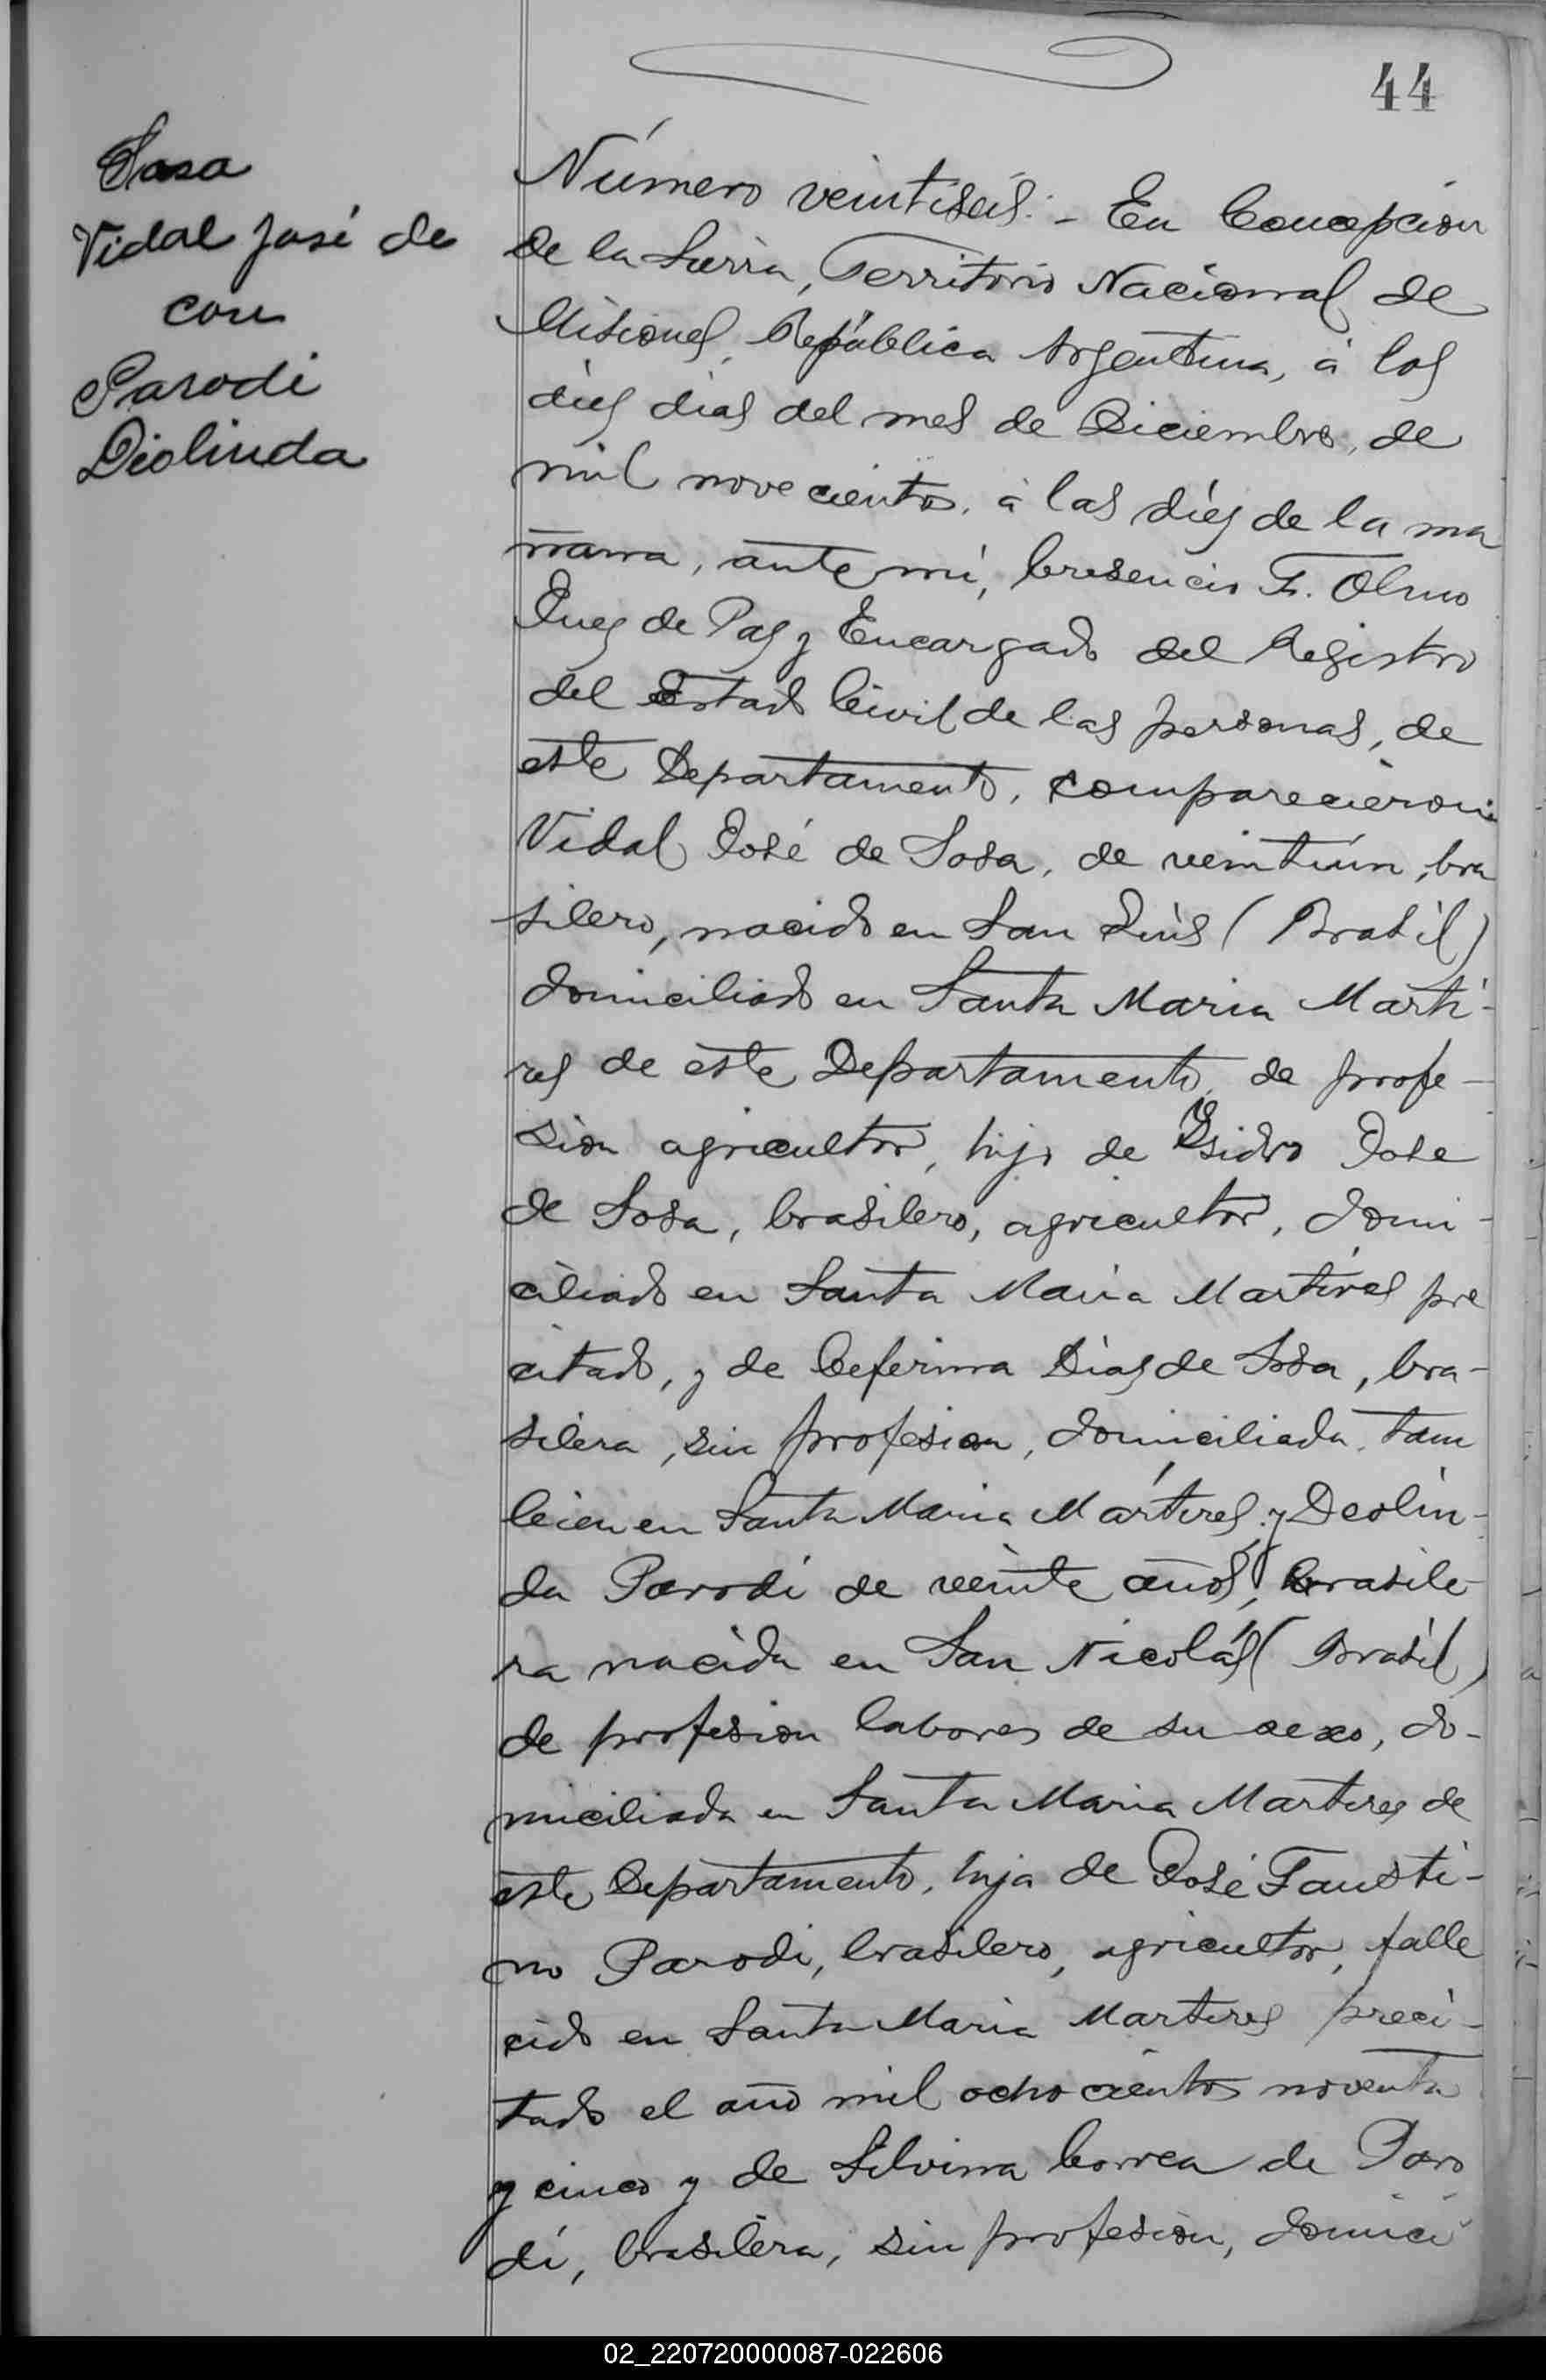 44
Sosa
Vidal José de
con
Parodi
Diolinda
Número veintiséis:- En Concepción
de la Sierra, Territorio Nacional de
Misiones, República Argentina, á los
diez dias del mes de Diciembre, de
mil novecientos, á las diéz de la ma
ñana, ante mí, Cresencio F. Olmo
Juez de Paz y Encargado del Registro
del Estado Civil de las personas, de
este Departamento, comparecieron:
Vidal José de Sosa, de veintiún, bra
silero, nacido en San Luis (Brasil)
domiciliado en Santa Maria Marti-
res de este Departamento, de profe-
sion agricultor, hijo de Ysidro José
de Sosa, brasilero, agricultor, domi-
ciliado en Santa Maria Martires pre
citado, y de Ceferina Diaz de Sosa, bra-
silera, sin profesion, domiciliada tam
bien en Santa Maria Mártires y Deolin-
da Parodi de veinte años, brasile-
ra nacida en San Nicolás (Brasil)
de profesion labores de su sexo, do-
miciliada en Santa Maria Martires de
este Departamento, hija de José Fausti-
no Parodi, brasilero, agricultor, falle
cido en Santa Maria Martires preci-
tado el año mil ochocientos noventa
y cinco y de Silvina Correa de Paro
di, brasilera, sin profesion, domici
02_220720000087-022606